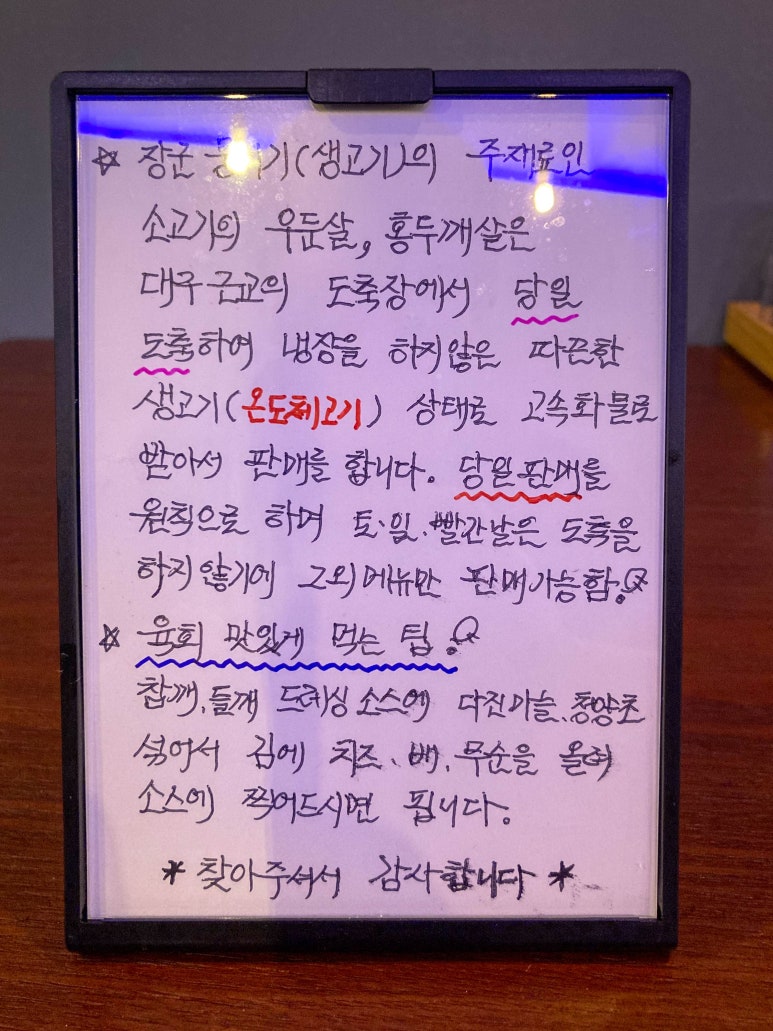 ☆ 장군 뭉티기(생고기)의 주재료인
소고기의 우둔살, 홍두깨살은
대구근교의 도축장에서 당일
도축하여 냉장을 하지않은 따끈한
생고기(온도체고기) 상태로 고속화물로
받아서 판매를 합니다. 당일판매를
원칙으로 하며 토·일·빨간날은 도축을
하지않기에 그외메뉴만 판매가능함!
☆ 육회 맛있게 먹는 팁!
참깨, 들깨 드레싱소스에 다진마늘, 청양초
섞어서 김에 치즈, 배, 무순을 올려
소스에 찍어드시면 됩니다.
* 찾아주셔서 감사합니다 *